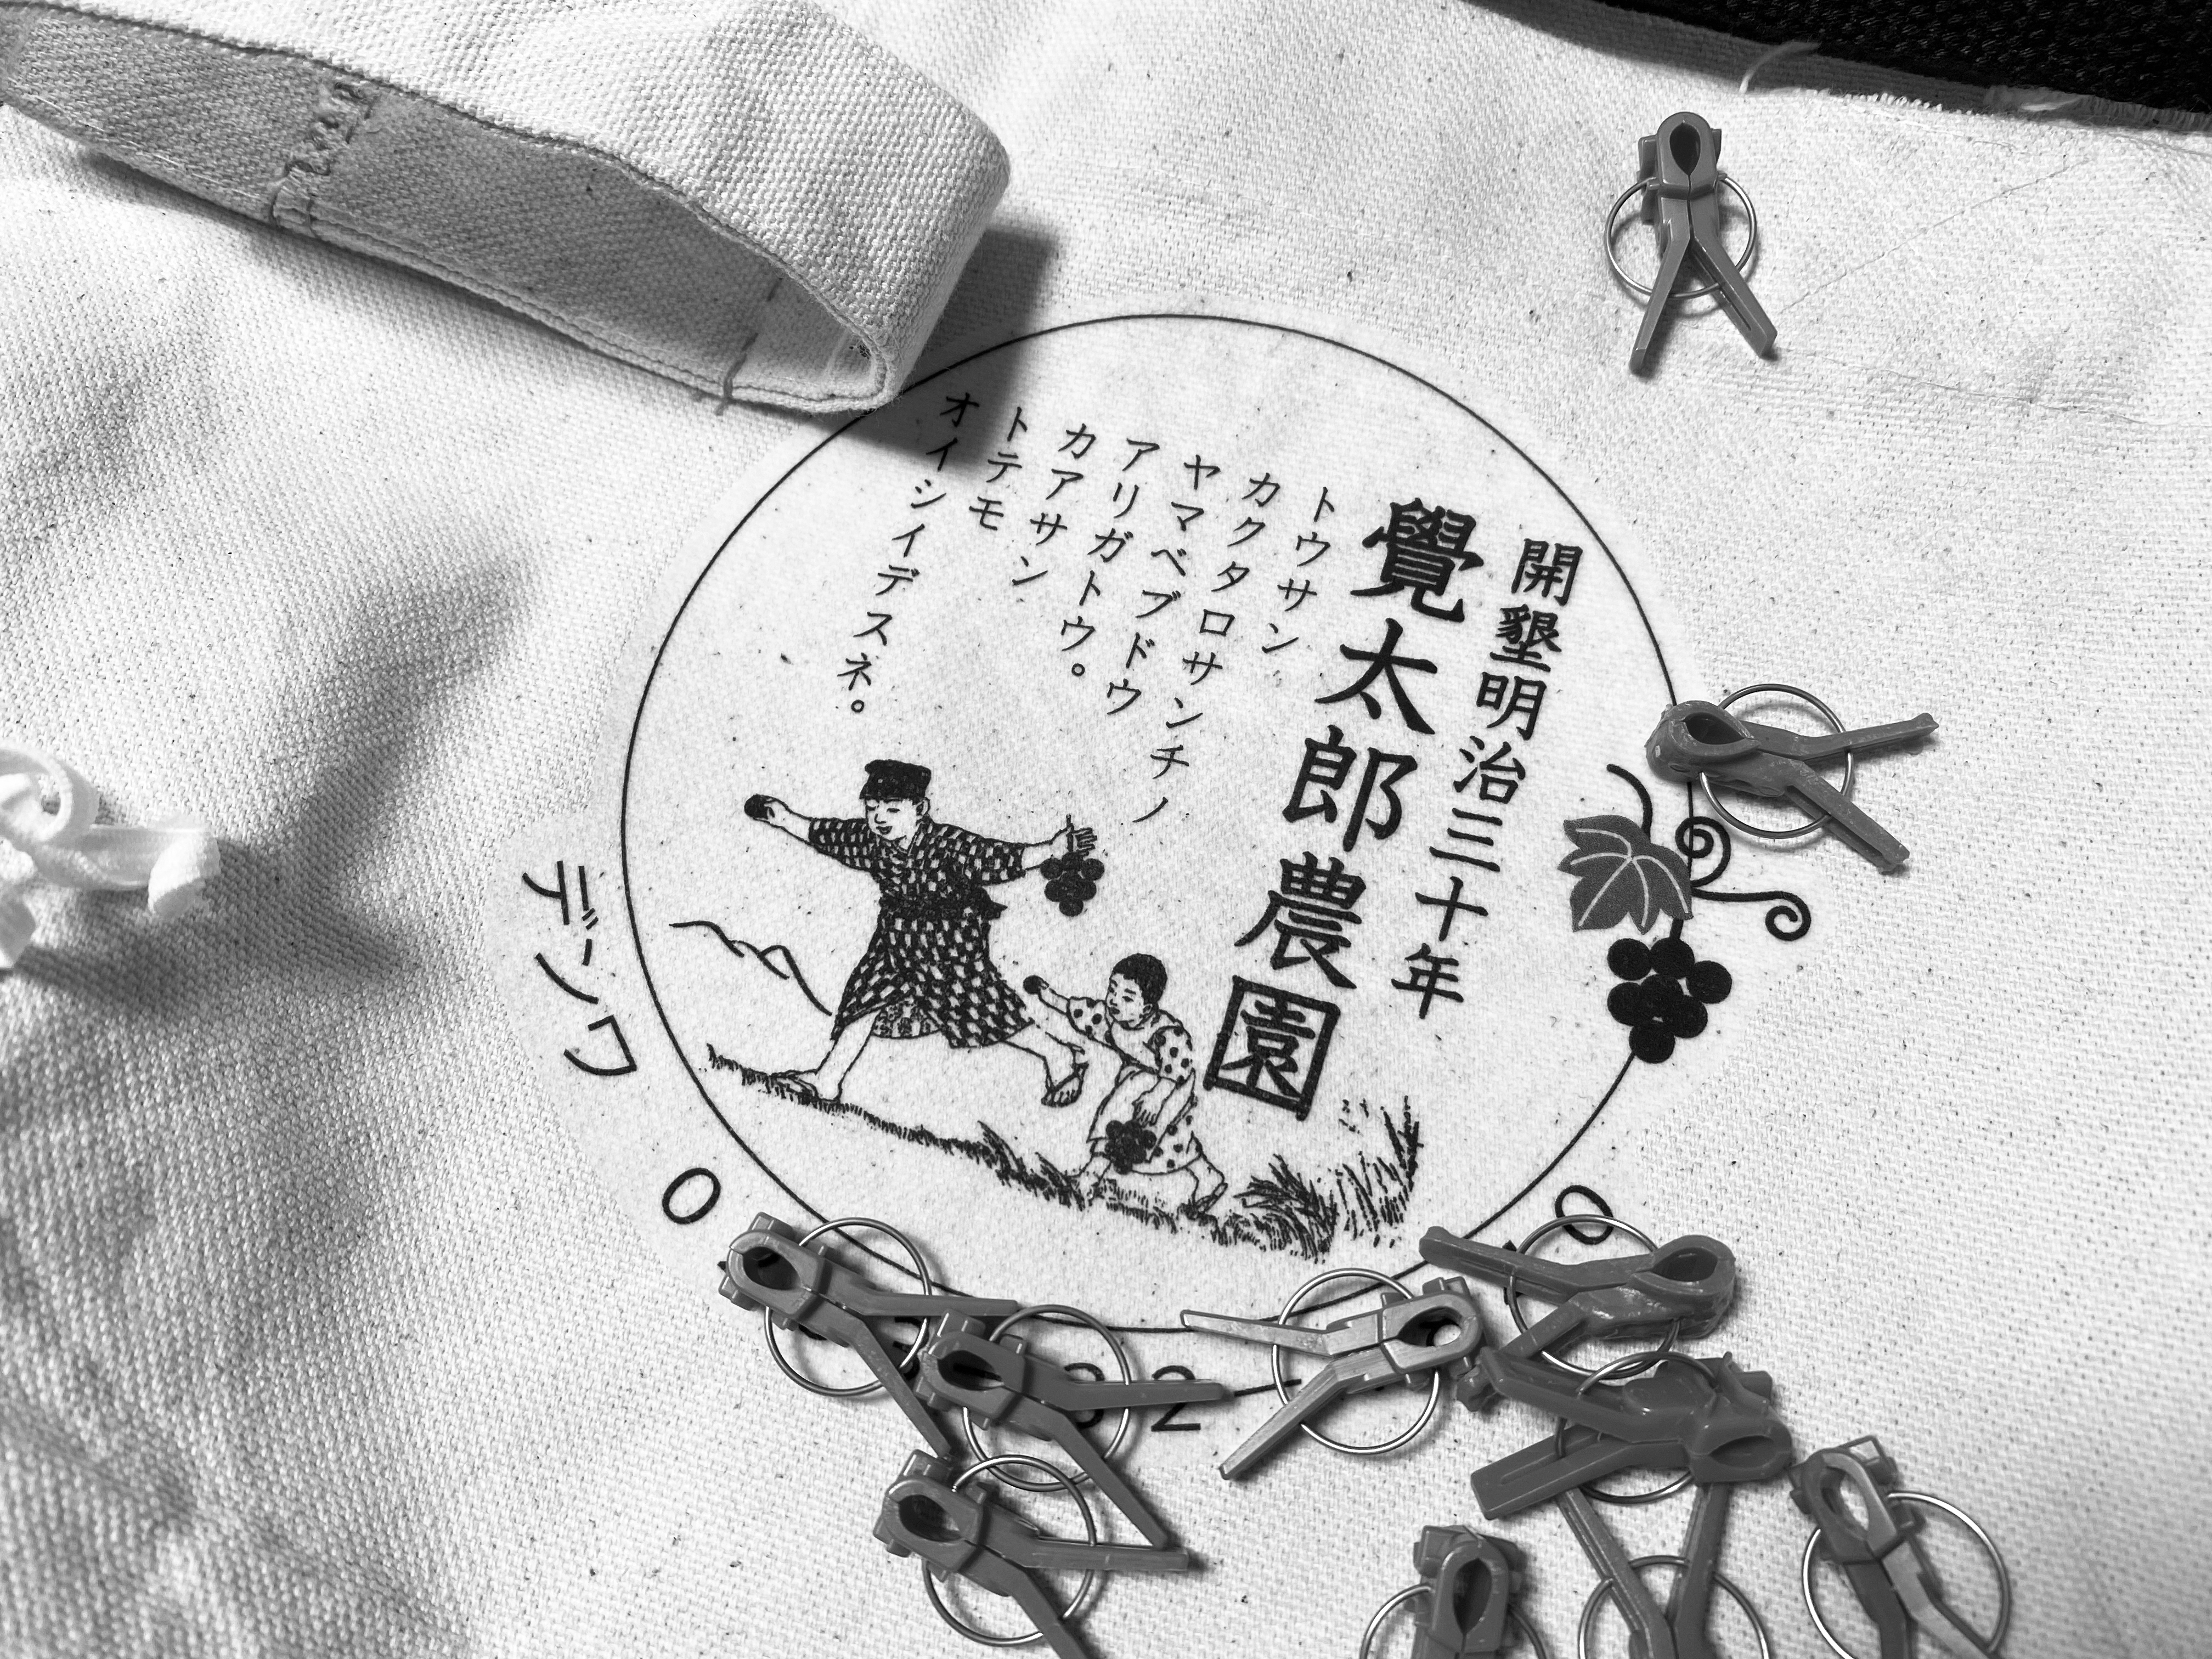 開墾明治三十年
覺太郎農園
トウサン
カクタロサンチノ
ヤマベブドウ
アリガトウ。
カアサン
トテモ
オイシイデスネ。
デンワ
0
3 2
0